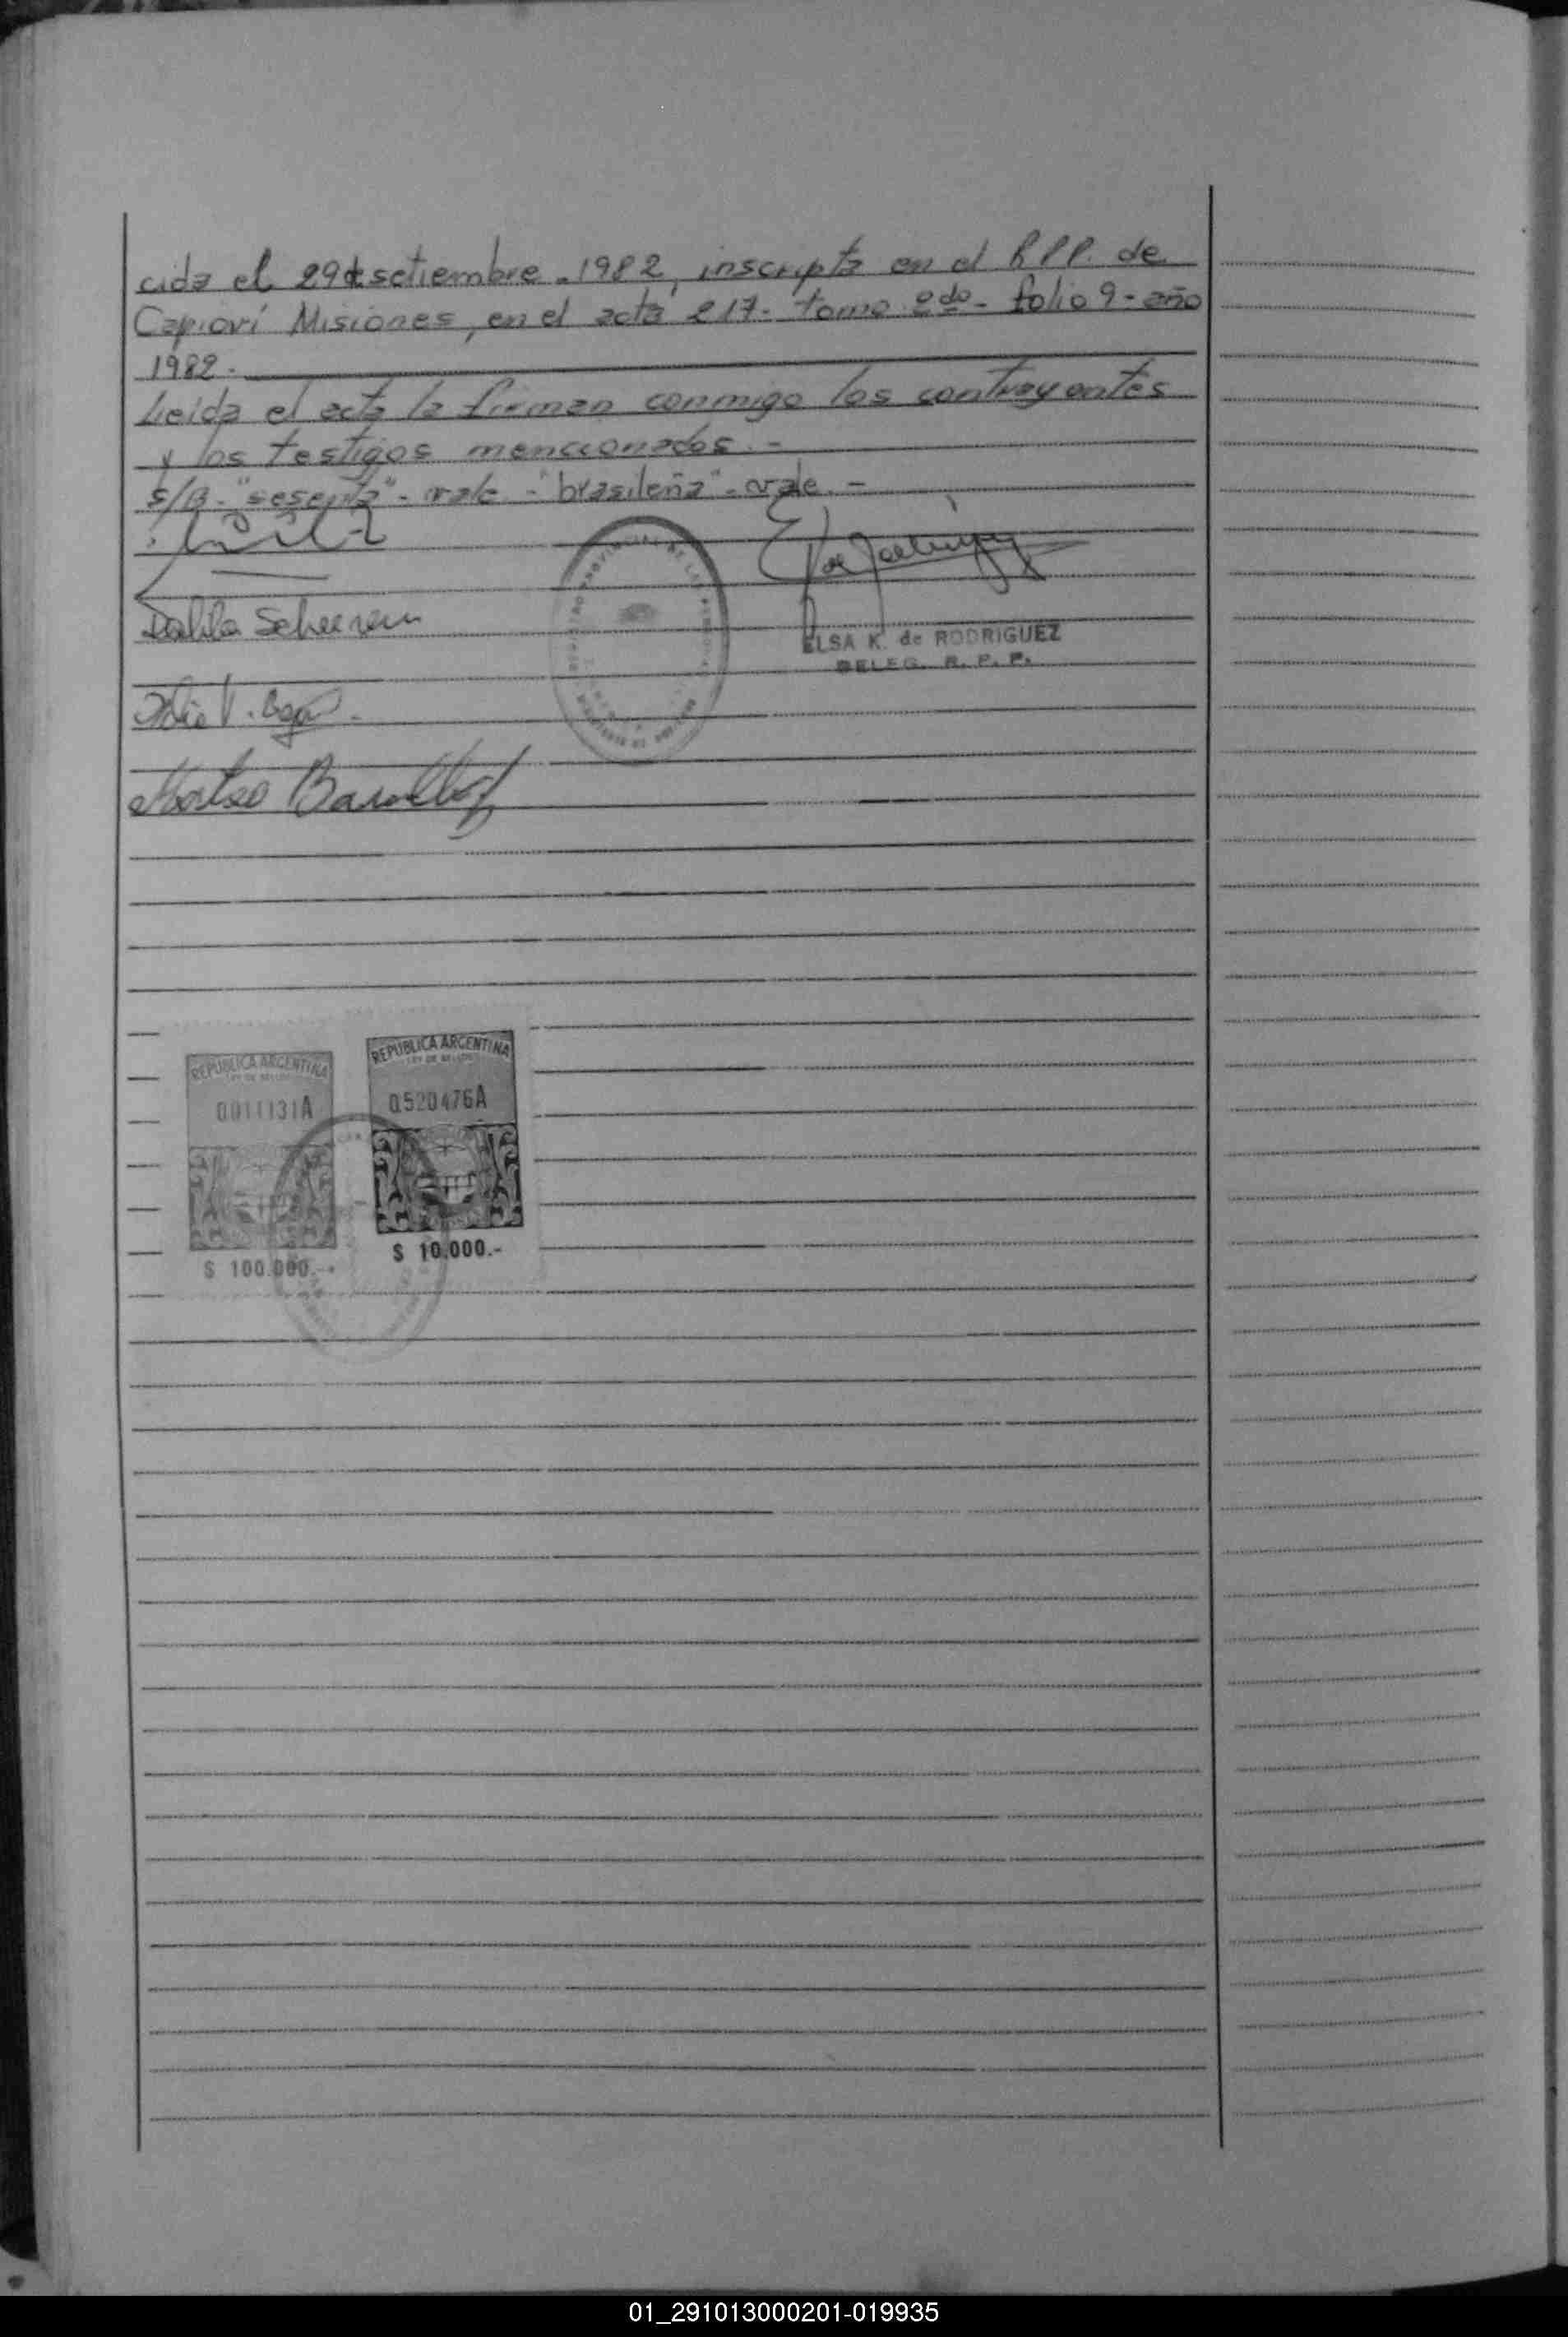 cida el 29 de setiembre - 1982, inscripta en el R.P.P. de
Capioví Misiones, en el acta 217 - tomo 2do - folio 9 - año
1982 -
Leida el acta la firman conmigo los contrayentes
y los testigos mencionados. -
S/B - "sesenta" - vale - "brasileña" - vale. -
Dalila Scheeren
ELSA K. de RODRIGUEZ
DELEG. R. P. P.
Mateo
REPUBLICA ARGENTINA
LEY DE SELLOS
0011131A
$ 100.000.-
REPUBLICA ARGENTINA
LEY DE SELLOS
0520476A
$ 10.000.-
01_291013000201-019935